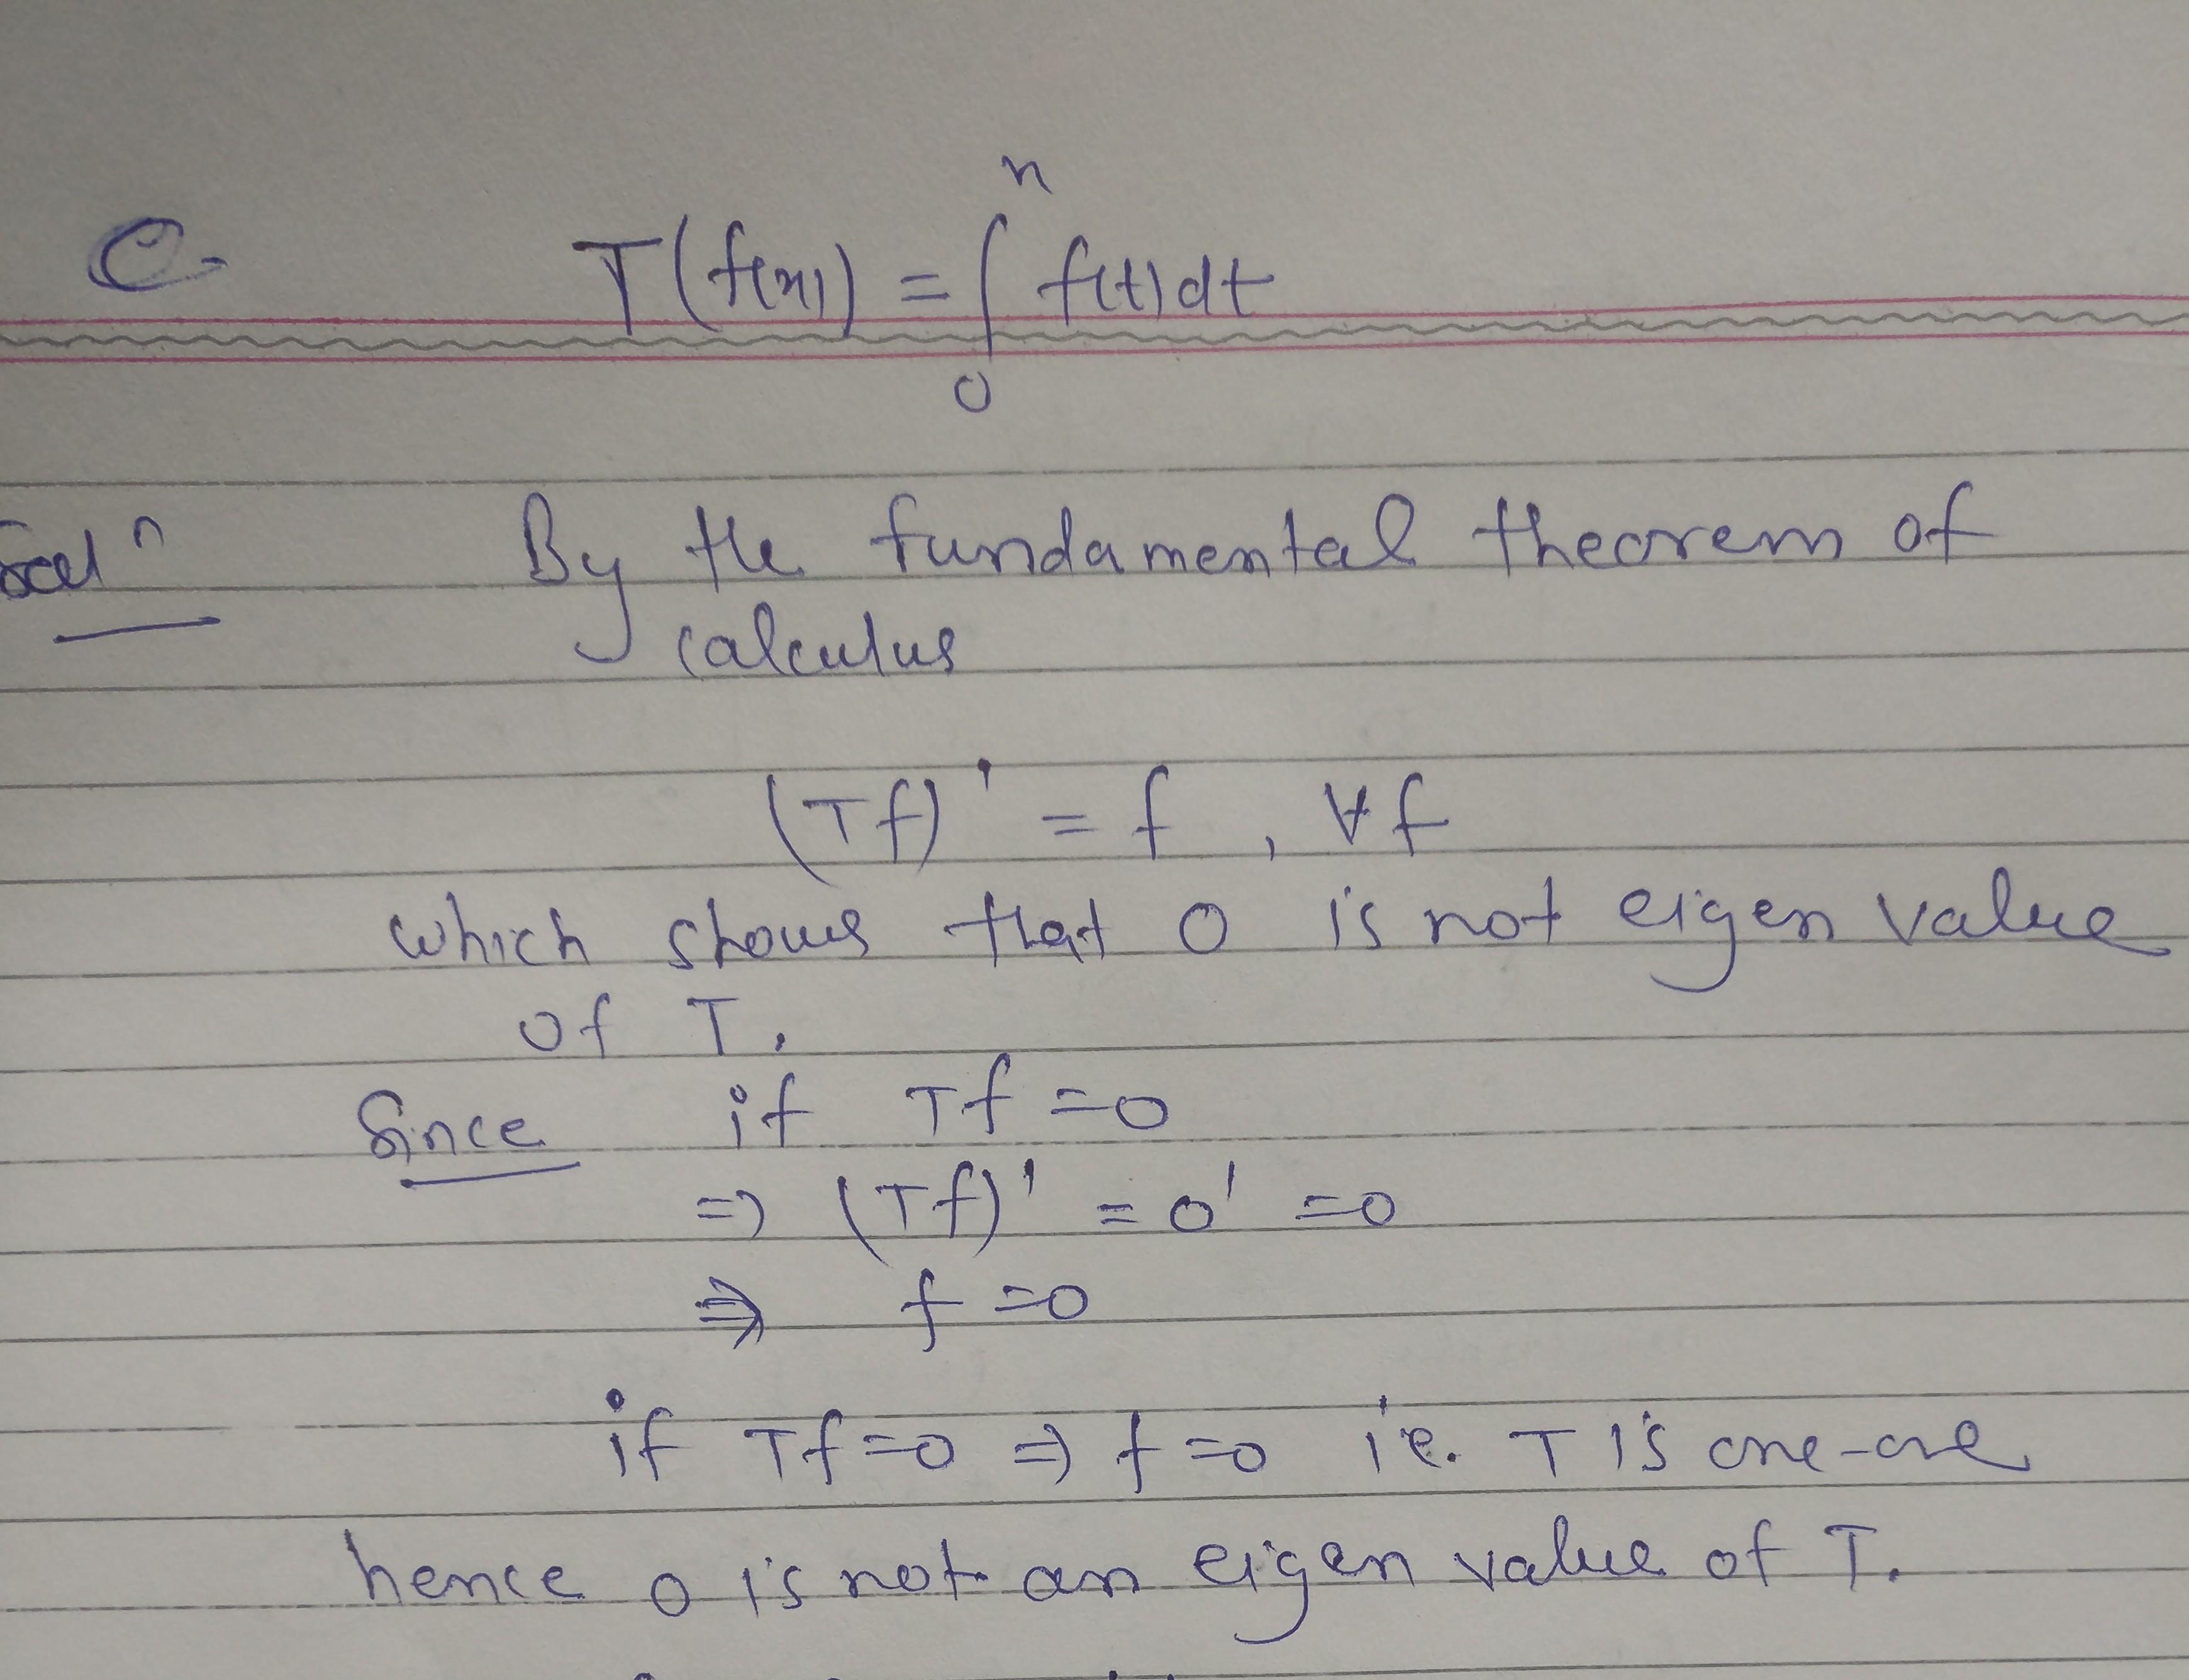 C.
x
T(f(x)) = ∫ f(t)dt
0
Solⁿ By the fundamental theorem of
calculus
(Tf)' = f , ∀f
which shows that 0 is not eigen value
of T.
Since if Tf=0
⇒ (Tf)' = 0' =0
⇒ f=0
if Tf=0 ⇒ f=0 i.e. T is one-one
hence 0 is not an eigen value of T.